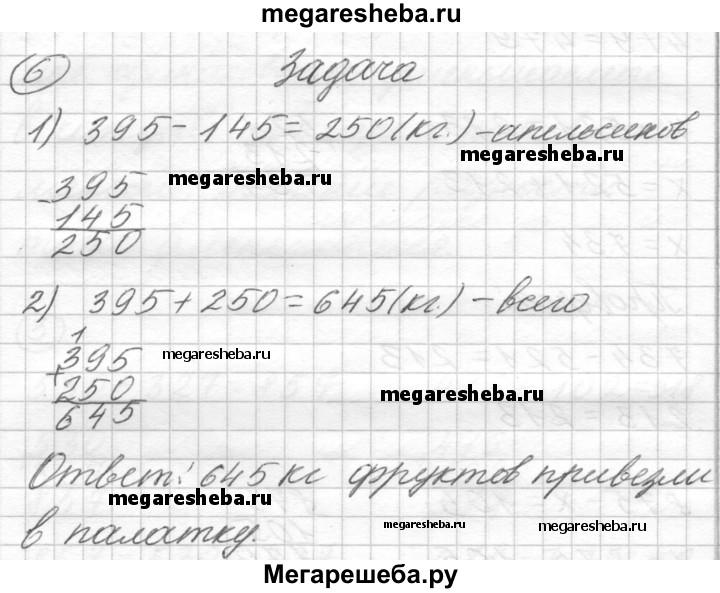 megaresheba.ru
6 Задача
1) 395 - 145 = 250 (кг.) - апельсинов
megaresheba.ru
megaresheba.ru
- 395
145
250
2) 395 + 250 = 645 (кг.) - всего
1
+ 395
megaresheba.ru
250
megaresheba.ru
645
Ответ: 645 кг фруктов привезли
megaresheba.ru
в палатку.
megaresheba.ru
megaresheba.ru
Мегарешеба.ру